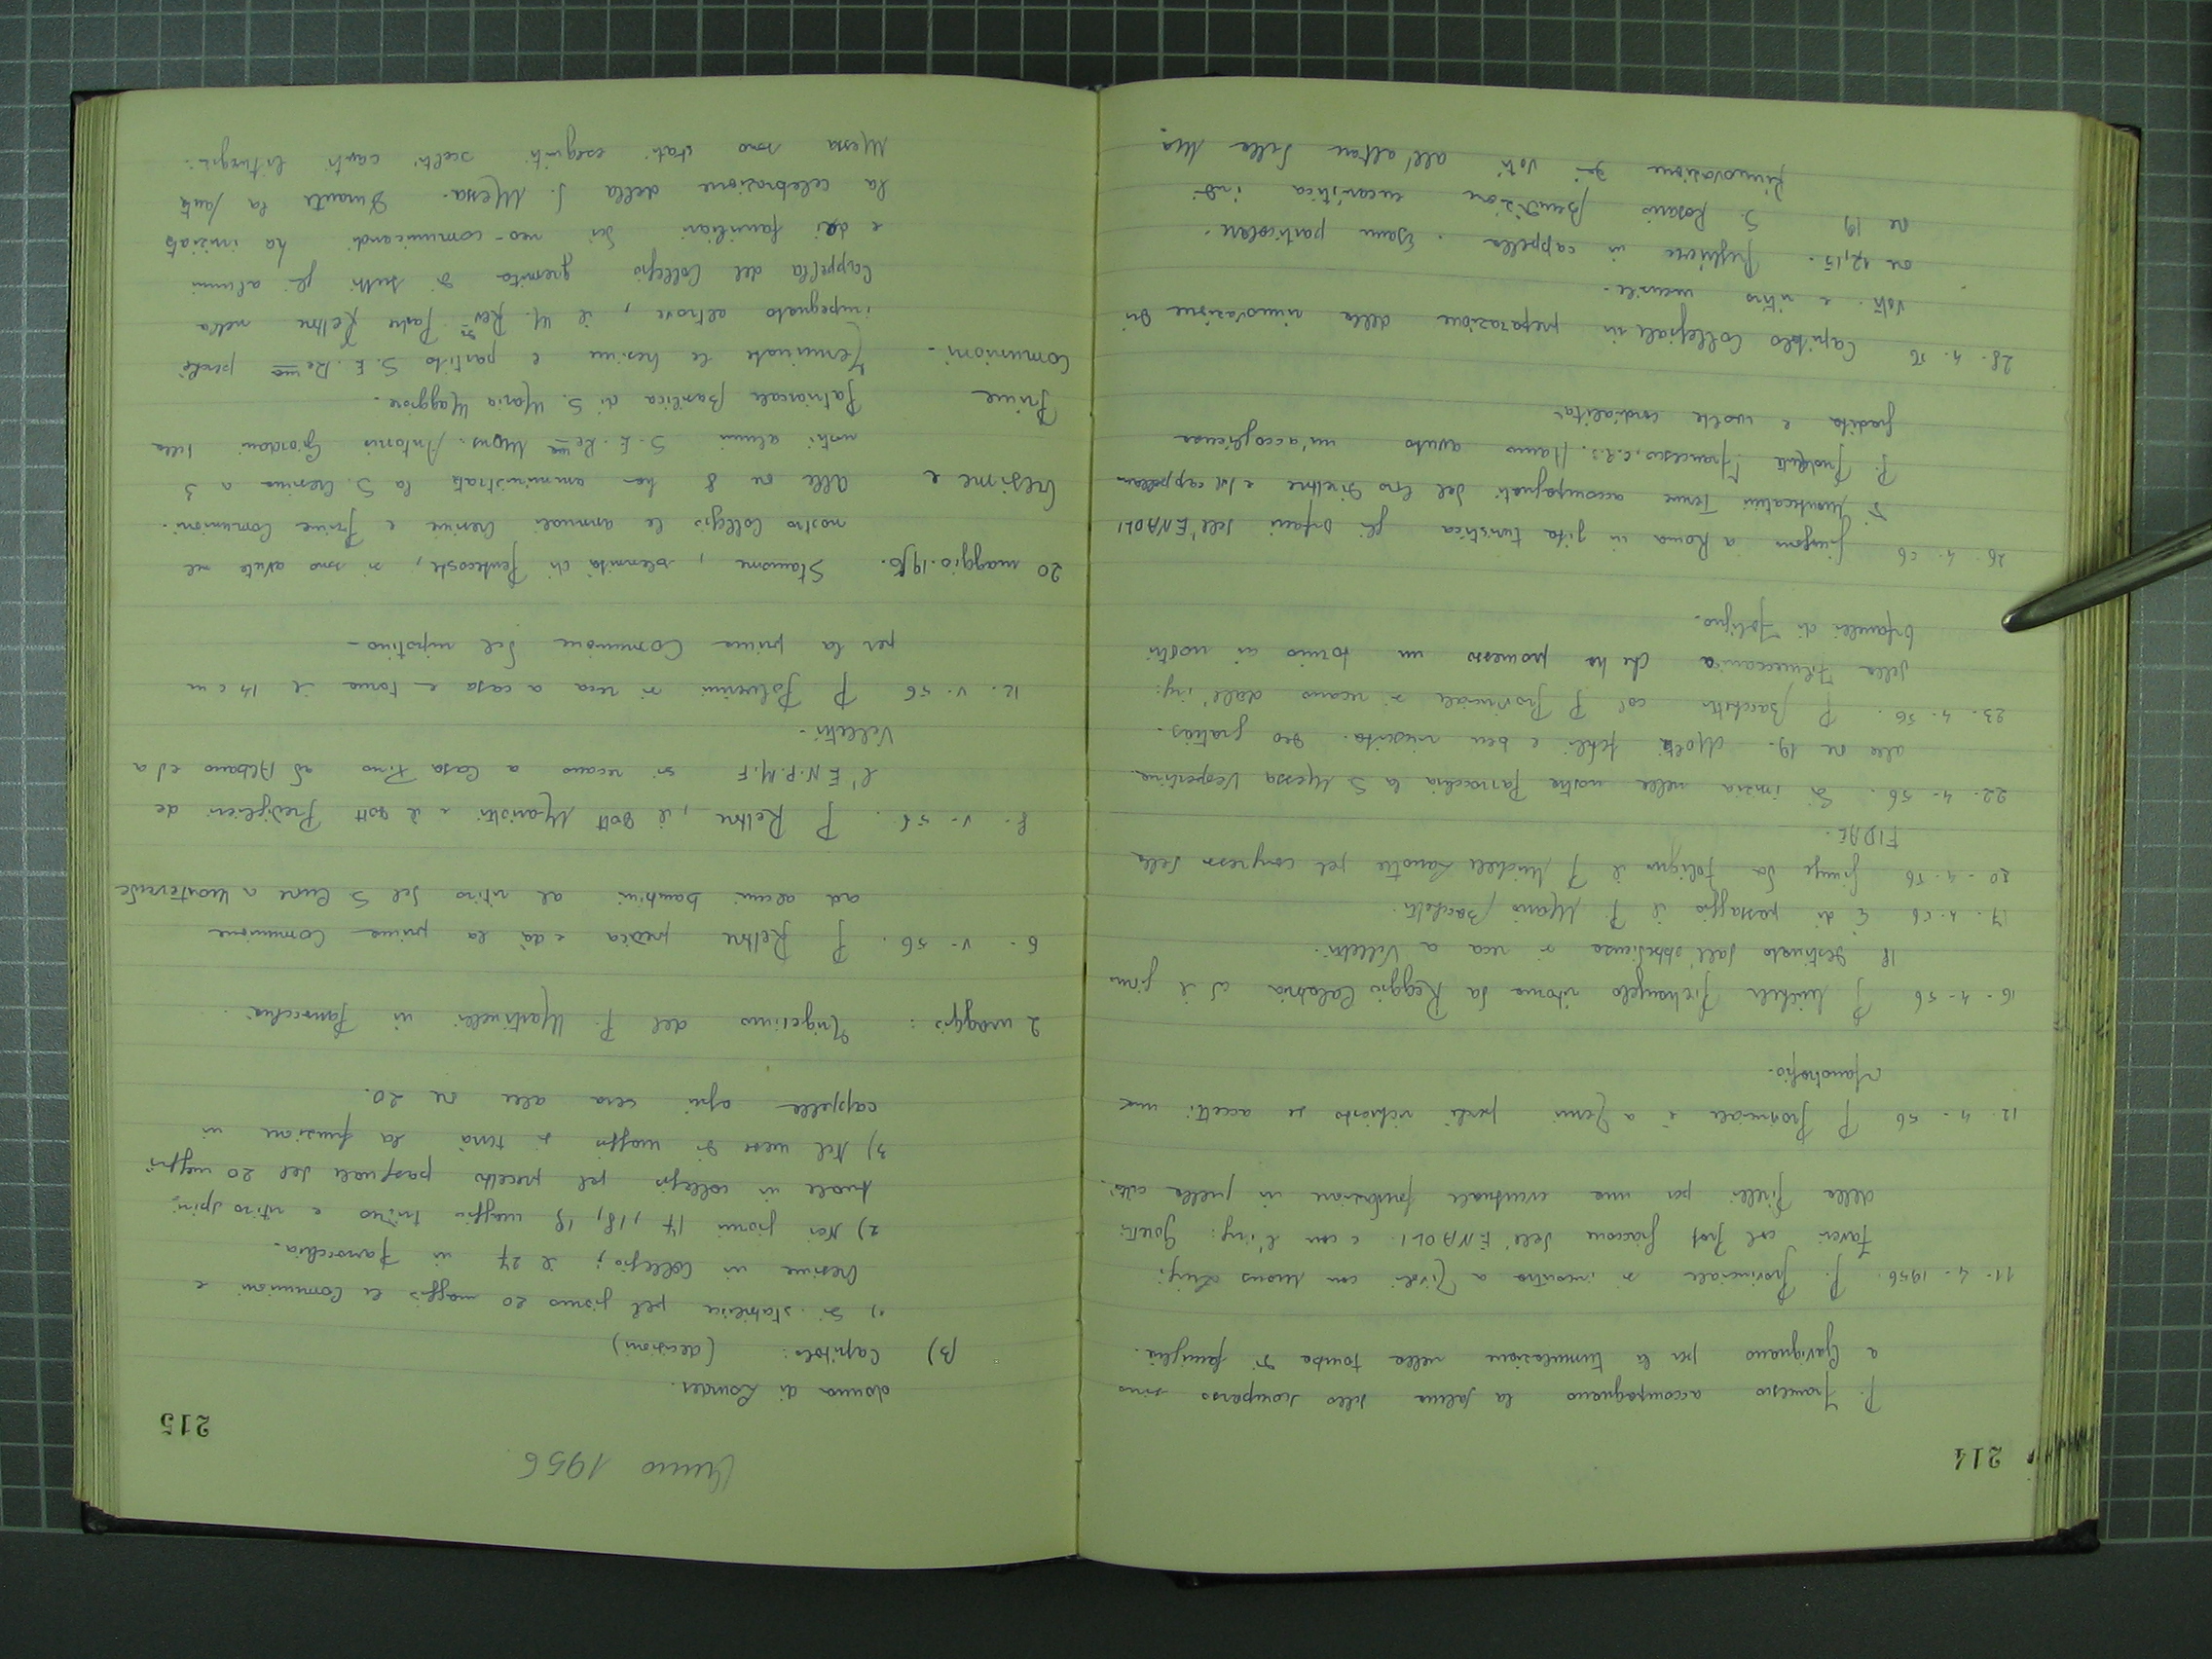 214
P. Francesco accompagnano la salma dello scomparso sino
a Gavignano per la tumulazione nella tomba di famiglia.
11-4-1956. P. Provinciale si incontra a Tivoli con Mons Luigi
Faveri col Prof Giaccone dell'ENAOLI e con l'ing:
della Pirelli per una eventuale fondazione in quella città.
12-4-56 P Provinciale è a Terni perché richiesto se accetti una
16-4-56 P Michele Pichangelo ritorna da Reggio Calabria ed il giorno
18 destinato dall'obbedienza si reca a Velletri.
17-4-56 È di passaggio il P. Mario Bacchetti.
20-4-56 Giunge da Foligno il P Michele pel congresso della
FIDAE.
22-4-56. Si inizia nella nostra Parrocchia la S Messa Vespertina
alle ore 19. Molti fedeli e ben riuscita. Deo gratias.
23-4-56. P Bacchetti col P Provinciale si recano dall'ing:
della Filmeccanica che ha promesso un tornio ai nostri
Orfanelli di Foligno.
26-4-56 Giungono a Roma in gita turistica gli Orfani dell'ENAOLI
di Montecatini Terme accompagnati dal loro Direttore e dal cappellano
P. Francesco, c.r.s. Hanno avuto un'accoglienza
gradita e molta cordialità
28-4-56 Capitolo Collegiale in preparazione della rinnovazione dei
voti e ritiro mensile.
ore 12,15. Riflessione in cappella. Esame particolare.
ore 19 S. Rosario Benedizione eucaristica indi
rinnovazione dei voti all'altare della Ma
Anno 1956
215
donna di Lourdes.
B) Capitolo: (decisioni)
1) Si stabilisce pel giorno 20 maggio le Comunioni e
Cresime in Collegio; il 27 in Parrocchia.
2) Nei giorni 17, 18, 19 maggio triduo e ritiro spiri,
tuale in collegio pel precetto pasquale del 20 maggio
3) Nel mese di maggio si terrà la funzione in
cappella ogni sera alle ore 20.
2 maggio: Onomastico del P. Martinelli in Parrocchia.
6-V-56. P Rettore predica e dà la prima Comunione
ad alcuni bambini al ritiro del S Cuore a Monteverde
8-V-56. P Rettore, il Dott Mariotti e il Dott de
l'E.N.P.M.F si recano a Casa Pino ad Albano ed a
Velletri.
12-V-56 P Polverini si reca a casa e torna il 14 c m
per la prima Comunione del nipotino-
20 maggio.1956. Stamane, solennità di Pentecoste, si sono avute nel
nostro Collegio le annuali Cresime e Prime Comunioni.
Cresime e Alle ore 8 ha amministrato la S. Cresima a 3
nostri alunni S.E. Rev.ma Mons. Antonio Giordani della
Prime Patriarcale Basilica di S. Maria Maggiore.
Comunioni- Terminate le Cresime e partito S.E. Rev.ma perché
impegnato altrove, il M. Rev.do Padre Rettore nella
Cappella del Collegio gremita di tutti gli alunni
e dei familiari dei neo-comunicandi ha iniziato
la celebrazione della S. Messa. Durante la Santa
Messa sono stati eseguiti scelti canti liturgici.